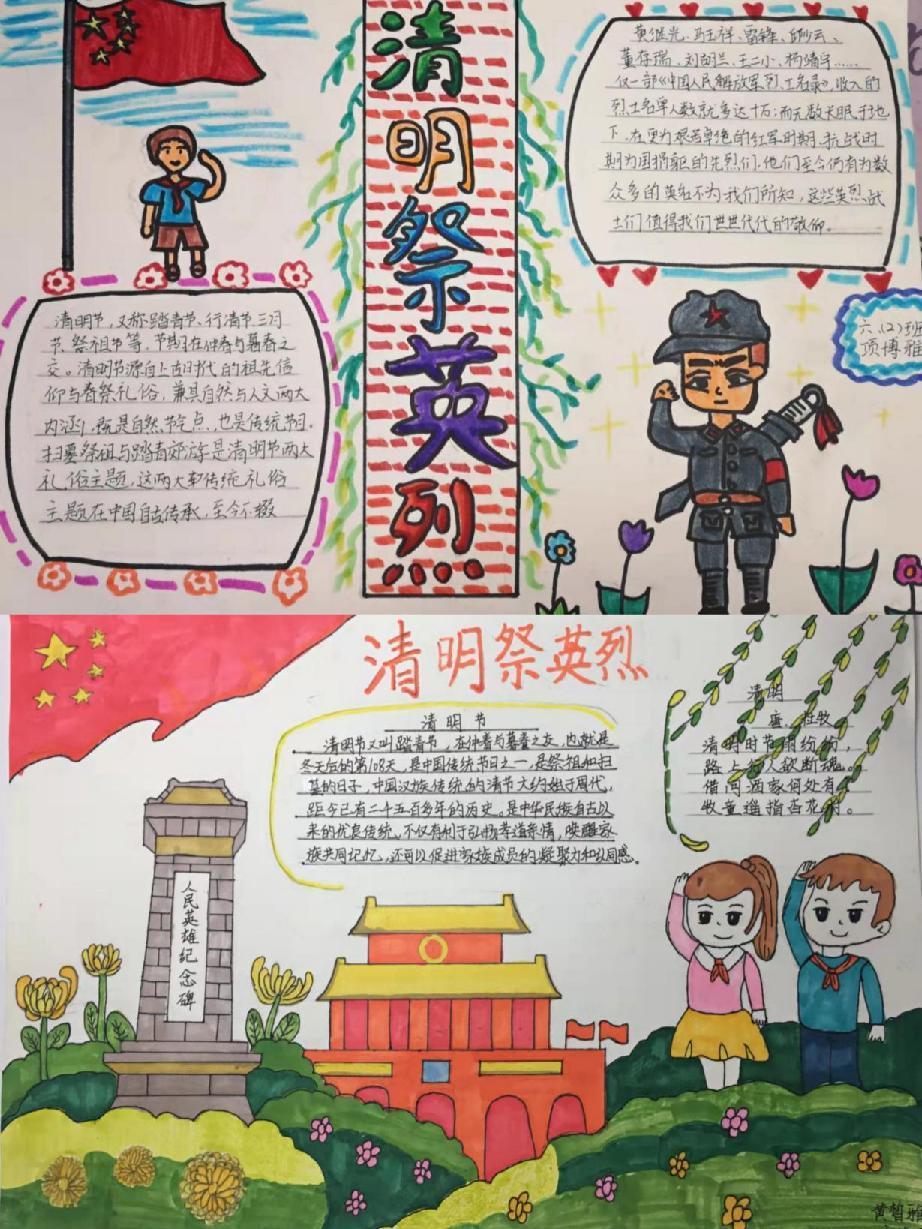 清明祭英烈
黄继光、马玉祥、雷锋、邱少云、
董存瑞、刘胡兰、王二小、杨靖宇……
仅一部《中国人民解放军烈士名录》，收入的
烈士名单人数就多达十万；而无数长眠于地
下，在更为艰苦卓绝的红军时期、抗战时
期为国捐躯的先烈们，他们至今仍有为数
众多的英名不为我们所知，这些英烈战
士们值得我们世世代代的敬仰。
清明节，又称踏青节、行清节、三月
节、祭祖节等，节期在仲春与暮春之
交。清明节源自上古时代的祖先信
仰与春祭礼俗，兼具自然与人文两大
内涵，既是自然节气点，也是传统节日，
扫墓祭祖与踏青郊游是清明节两大
礼俗主题，这两大传统礼俗
主题在中国自古传承，至今不辍
六、(2)班
项博雅
清明祭英烈
清明节
清明节又叫踏青节，在仲春与暮春之交，也就是
冬天后的第108天，是中国传统节日之一，是祭祖和扫
墓的日子，中国汉族传统的清节大约始于周代，
距今已有二千五百多年的历史。是中华民族自古以
来的优良传统，不仅有利于弘扬孝道亲情，唤醒家
族共同记忆，还可以促进家族成员的凝聚力和认同感。
清明
唐，杜牧
清明时节雨纷纷，
路上行人欲断魂。
借问酒家何处有，
牧童遥指杏花村。
人民英雄纪念碑